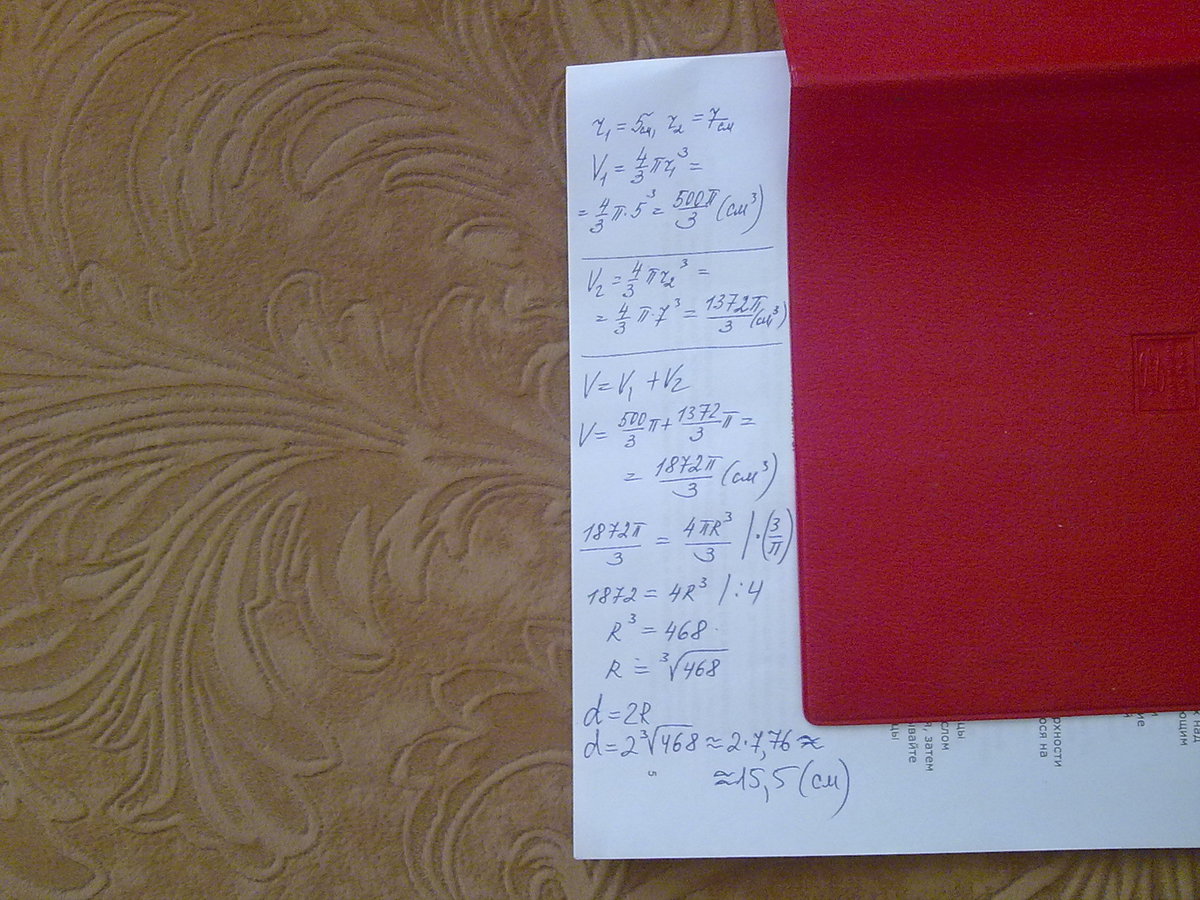 r₁ = 5см, r₂ = 7см
V₁ = 4/3 πr₁³ =
= 4/3 π·5³ = 500π/3 (см³)
V₂ = 4/3 πr₂³ =
= 4/3 π·7³ = 1372π/3 (см³)
V = V₁ + V₂
V = 500/3 π + 1372/3 π =
= 1872π/3 (см³)
1872π/3 = 4πR³/3 |·(3/π)
1872 = 4R³ | :4
R³ = 468
R = ³√468
d = 2R
d = 2³√468 ≈ 2·7,76 ≈
≈ 15,5 (см)
5
цы
слом
, затем
ывайте
цы
рхности
ося на
ие
х над
ющим